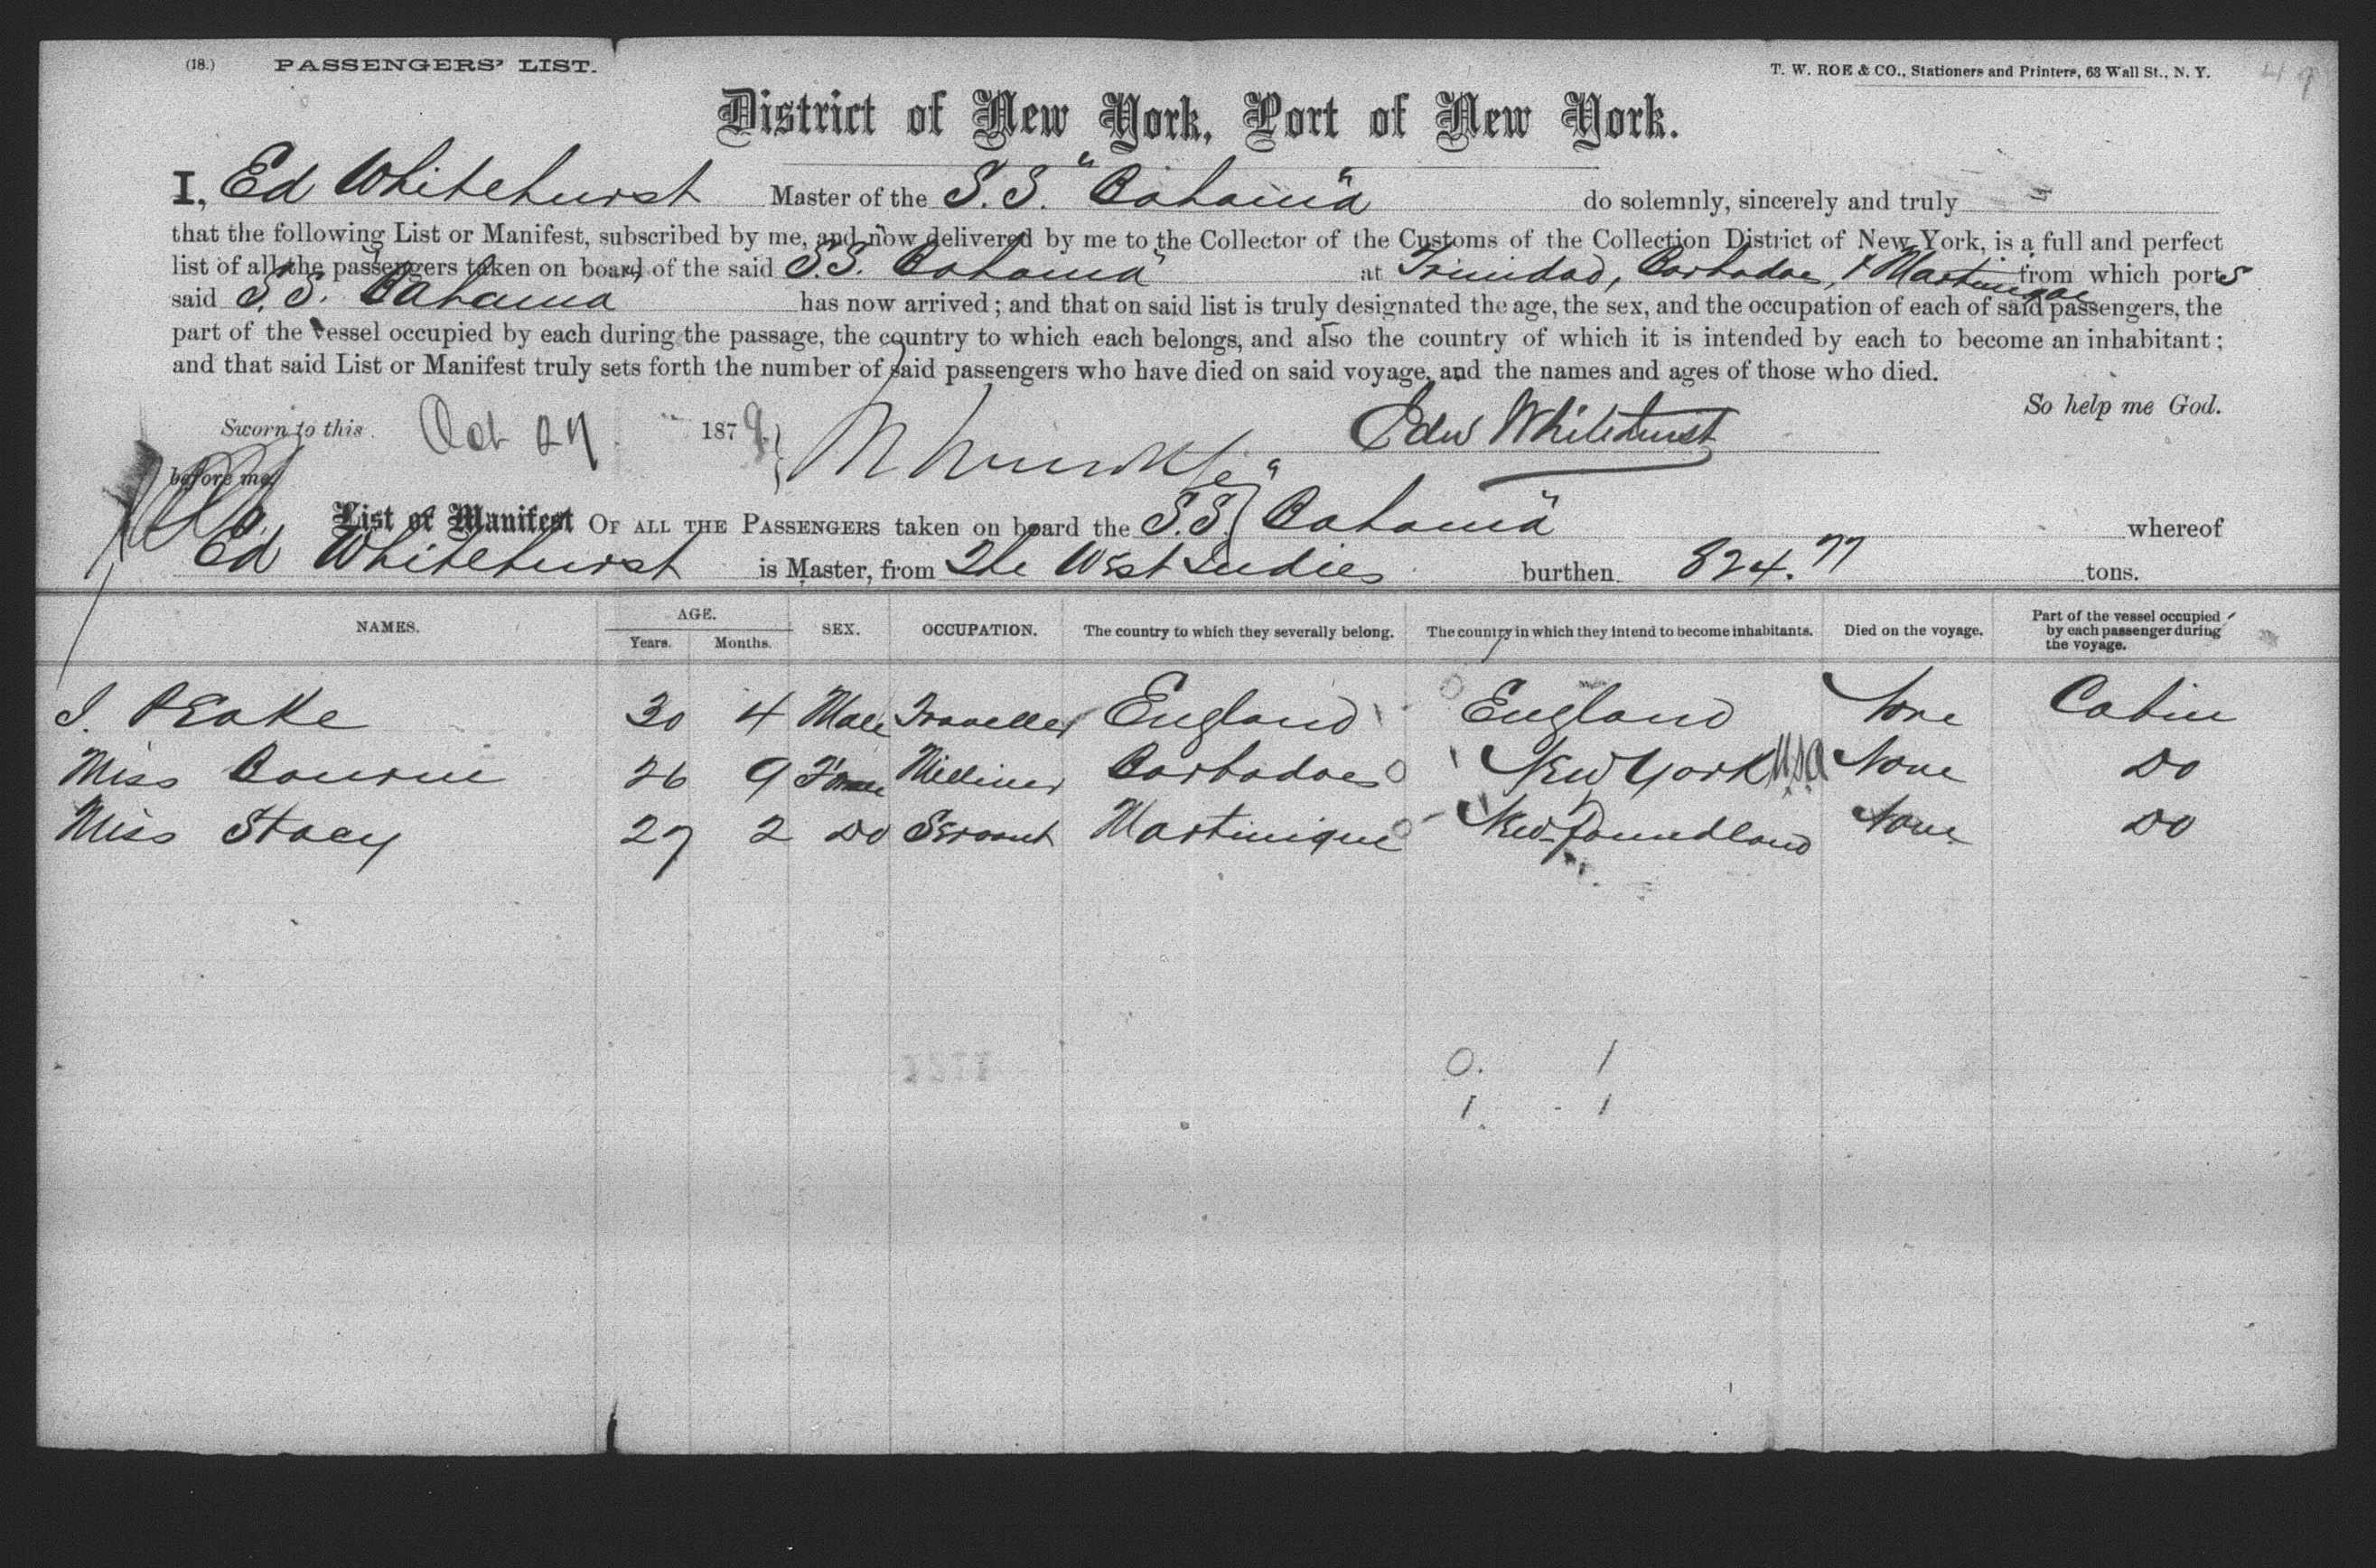 (18.) PASSENGERS' LIST. T. W. ROE & CO., Stationers and Printers, 63 Wall St., N. Y.
District of New York, Port of New York.
I, Ed Whitehurst Master of the S.S. "Bahama" do solemnly, sincerely and truly
that the following List or Manifest, subscribed by me, and now delivered by me to the Collector of the Customs of the Collection District of New York, is a full and perfect
list of all the passengers taken on board of the said S.S. "Bahama" at Trinidad, Barbadoes, & Martinique from which ports
said S.S. "Bahama has now arrived; and that on said list is truly designated the age, the sex, and the occupation of each of said passengers, the
part of the vessel occupied by each during the passage, the country to which each belongs, and also the country of which it is intended by each to become an inhabitant;
and that said List or Manifest truly sets forth the number of said passengers who have died on said voyage, and the names and ages of those who died.
So help me God.
Sworn to this Oct 27 1879. Edw Whitehurst
before me
List or Manifest OF ALL THE PASSENGERS taken on board the S.S. "Bahama" whereof
Ed Whitehurst is Master, from The West Indies burthen 824.77 tons.
NAMES. AGE. Years. Months. SEX. OCCUPATION. The country to which they severally belong. The country in which they intend to become inhabitants. Died on the voyage. Part of the vessel occupied by each passenger during the voyage.
J. Peake 30 4 Male Traveller England England None Cabin
Miss 26 9 Milliner Barbadoes New York USA None Do
Miss Stacy 27 2 Do Servant Martinique Newfoundland None Do
0. 1
1 1